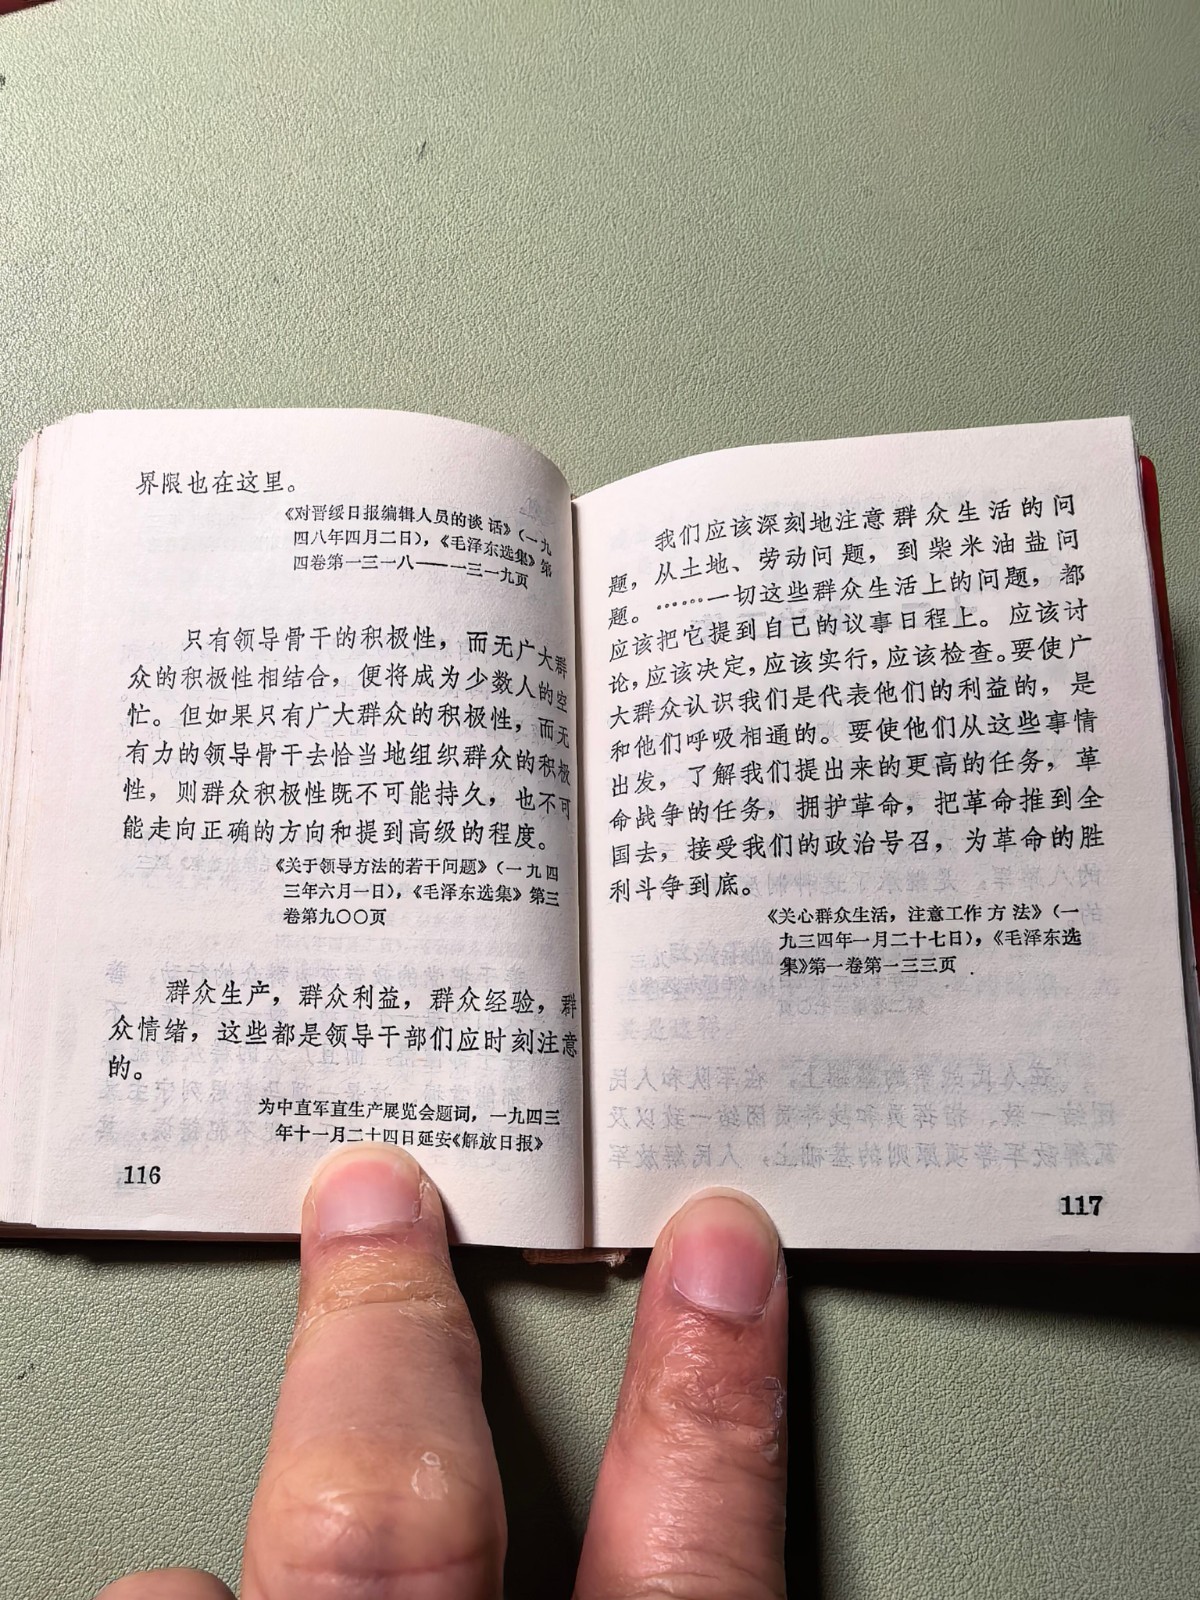 界限也在这里。
《对晋绥日报编辑人员的谈话》（一九
四八年四月二日），《毛泽东选集》第
四卷第一三一八——一三一九页
只有领导骨干的积极性，而无广大群
众的积极性相结合，便将成为少数人的空
忙。但如果只有广大群众的积极性，而无
有力的领导骨干去恰当地组织群众的积极
性，则群众积极性既不可能持久，也不可
能走向正确的方向和提到高级的程度。
《关于领导方法的若干问题》（一九四
三年六月一日），《毛泽东选集》第三
卷第九〇〇页
群众生产，群众利益，群众经验，群
众情绪，这些都是领导干部们应时刻注意
的。
为中直军直生产展览会题词，一九四三
年十一月二十四日延安《解放日报》
116
我们应该深刻地注意群众生活的问
题，从土地、劳动问题，到柴米油盐问
题。……一切这些群众生活上的问题，都
应该把它提到自己的议事日程上。应该讨
论，应该决定，应该实行，应该检查。要使广
大群众认识我们是代表他们的利益的，是
和他们呼吸相通的。要使他们从这些事情
出发，了解我们提出来的更高的任务，革
命战争的任务，拥护革命，把革命推到全
国去，接受我们的政治号召，为革命的胜
利斗争到底。
《关心群众生活，注意工作方法》（一
九三四年一月二十七日），《毛泽东选
集》第一卷第一三三页
117